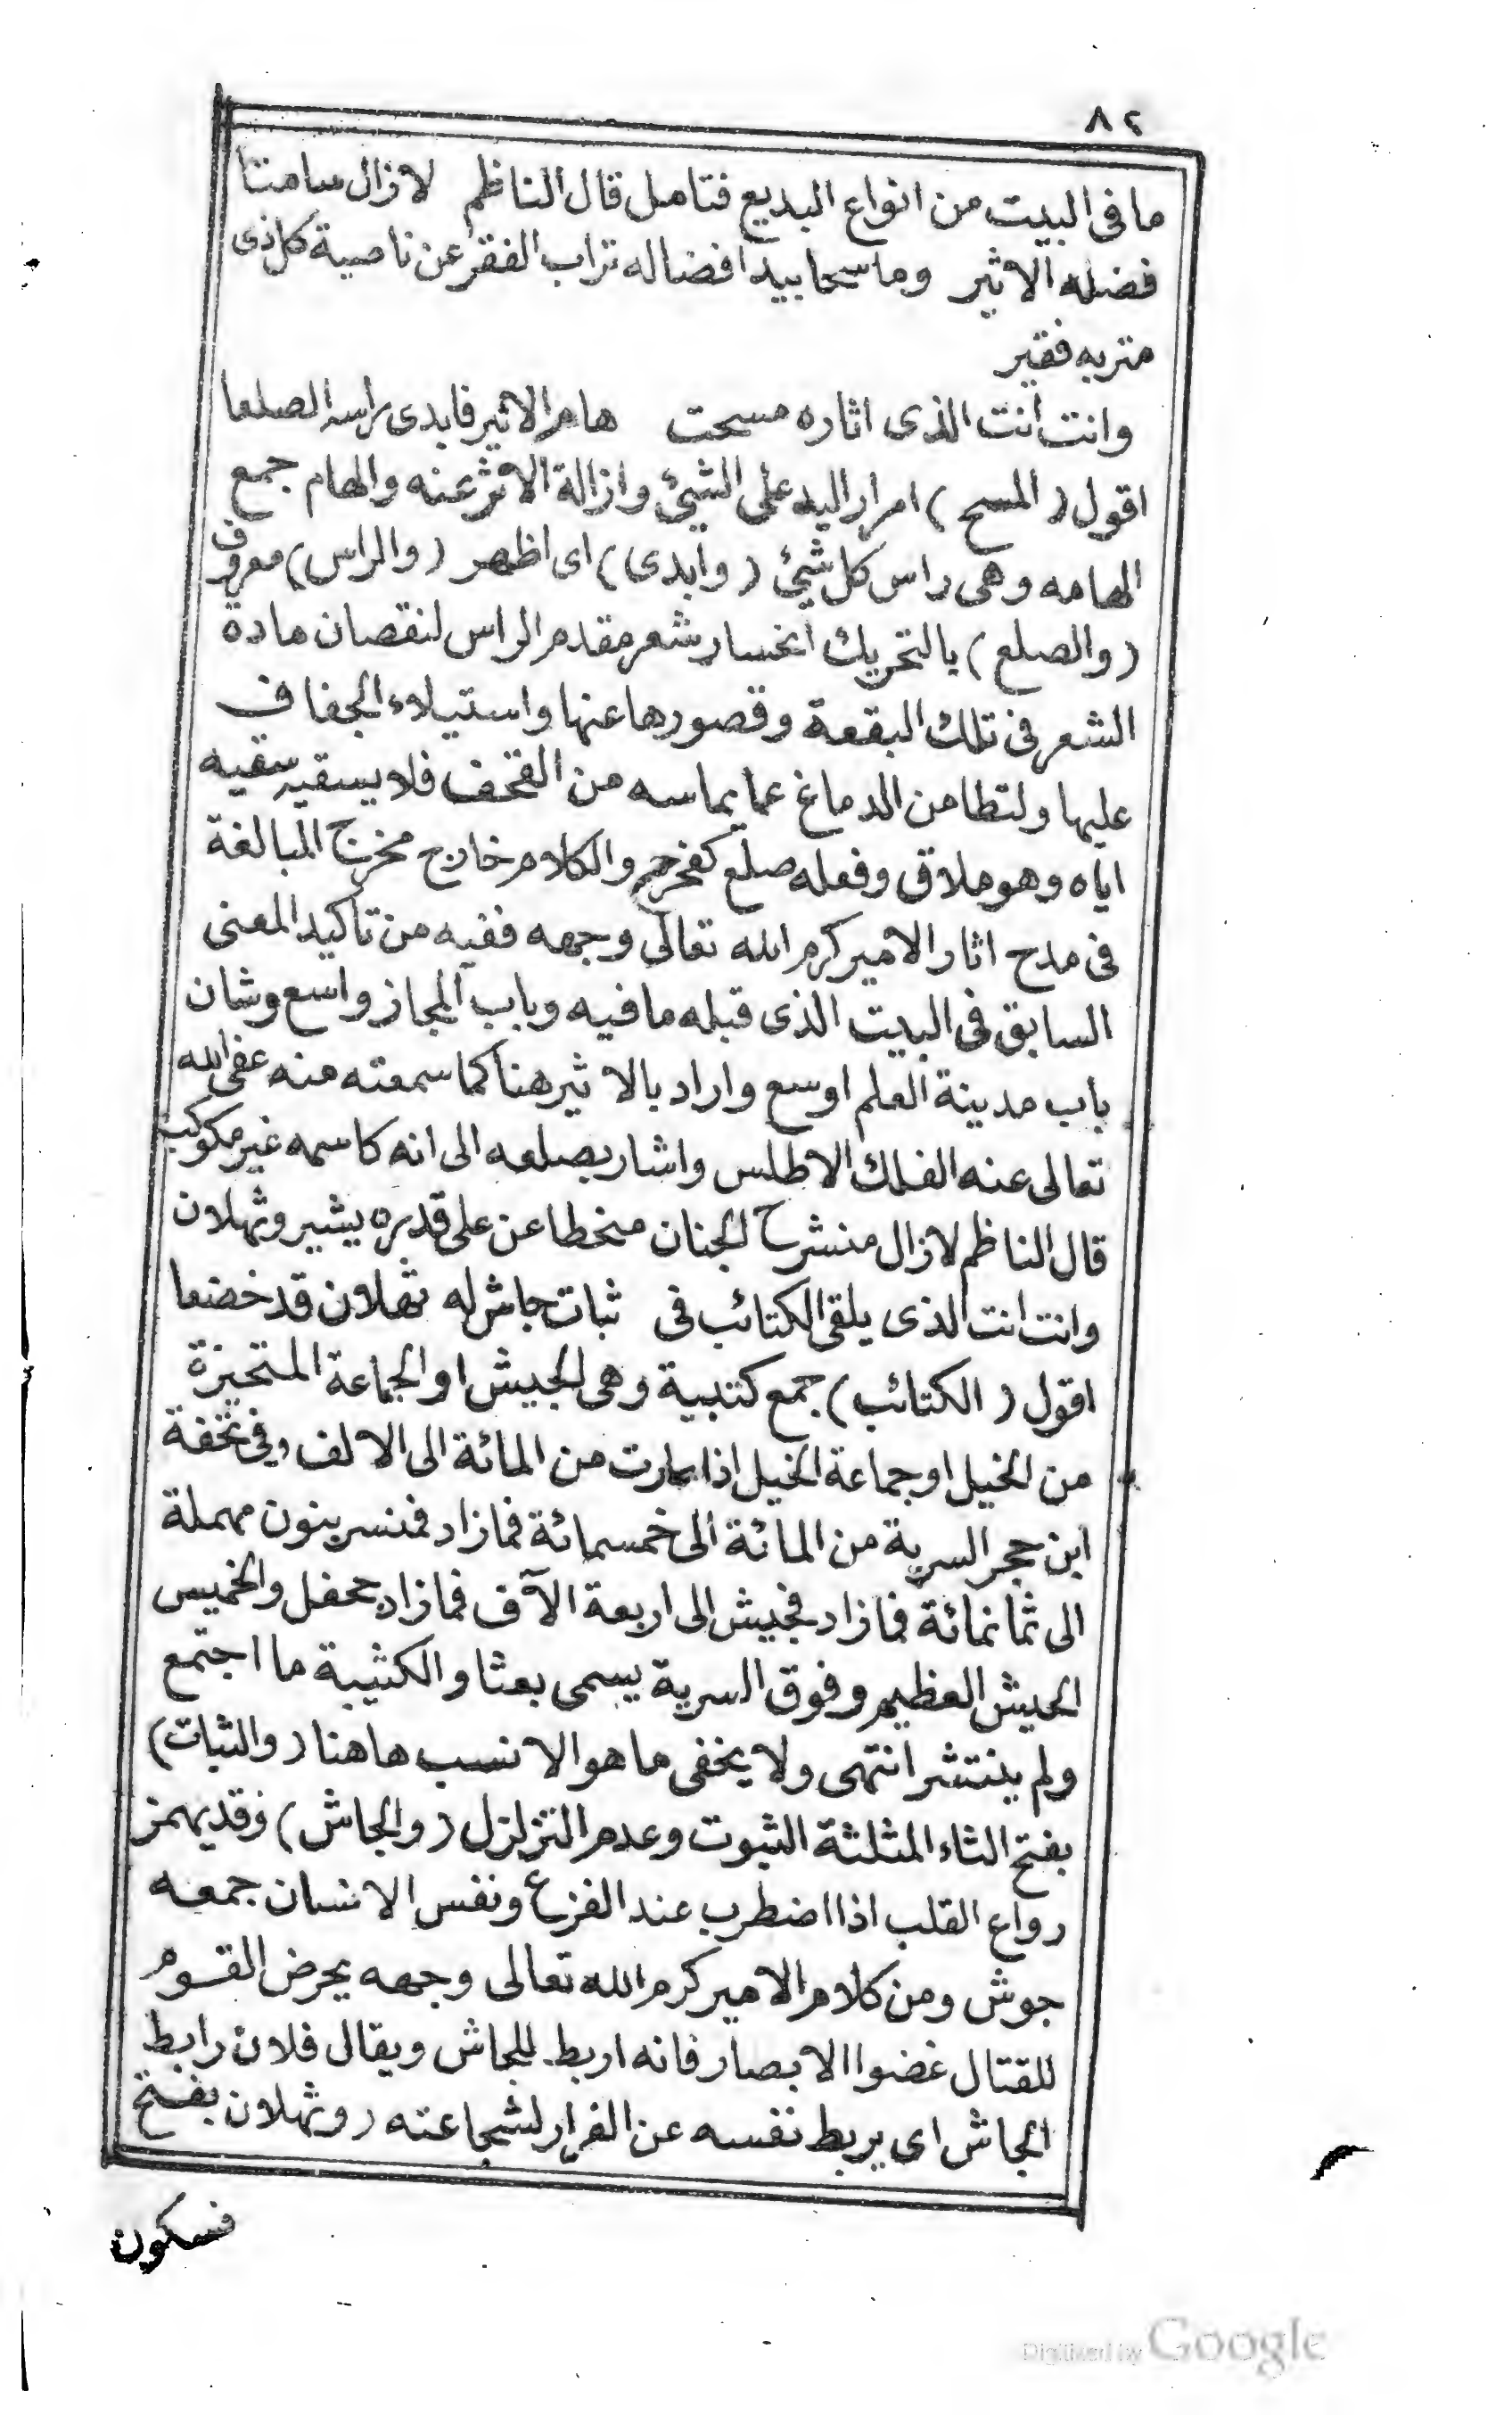 ٨٤
ما فى البيت من انواع البديع فتامل قال الناظم لازال سامتنا
فضله الاثير وماسحا بيد افضاله تراب الفقر عن ناصية كل ذى
متربه فقير
وانت انت الذى اثاره مسحت هام الاثير فابدى راسه الصلعا
اقول ( المسح ) امرار اليد على الشيئ وازالة الاثر عنه والهام جمع
الهامه وهى راس كل شيئ ( وابدى ) اى اظهر ( والراس ) معروف
( والصلع ) بالتحريك انحسار شعر مقدم الراس لنقصان مادة
الشعر فى تلك البقعة وقصورها عنها واستيلاء الجفاف
عليها ولتطامن الدماغ عما يماسه من القحف فلا يسقيه سقيه
اياه وهو ملاق وفعله صلع كفرح والكلام خارج مخرج المبالغة
فى مدح اثار الامير كرم الله تعالى وجهه ففيه من تاكيد المعنى
السابق فى البيت الذى قبله ما فيه وباب المجاز واسع وشان
باب مدينة العلم اوسع واراد بالاثير هنا كما سمعته منه عفى الله
تعالى عنه الفلك الاطلس واشار بصلعه الى انه كاسمه غير مكوكب
قال الناظم لازال منشرح الجنان منخطا عن على قدره يشير وثهلان
وانت انت الذى يلقى الكتائب فى ثبات جاش له ثهلان قد خضعا
اقول ( الكتائب ) جمع كتيبة وهى الجيش او الجماعة المتحيزة
من الخيل او جماعة الخيل اذا سارت من المائة الى الالف وفى تحفة
ابن حجر السرية من المائة الى خمسمائة فما زاد فمنسر بنون مهملة
الى ثمانمائة فما زاد فجيش الى اربعة الآف فما زاد جحفل والخميس
الجيش العظيم وفوق السرية يسمى بعثا والكثيبة ما اجتمع
ولم ينتشر انتهى ولا يخفى ما هو الانسب هاهنا ( والثبات )
بفتح الثاء المثلثة الثبوت وعدم التزلزل ( والجاش ) وقد يهمز
رواع القلب اذا اضطرب عند الفزع ونفس الانسان جمعه
جوش ومن كلام الامير كرم الله تعالى وجهه يحرض القوم
للقتال غضوا الابصار فانه اربط للجاش ويقال فلان رابط
الجاش اى يربط نفسه عن الفرار لشجاعته ( وثهلان بفتح
فسكون
Digitized by Google